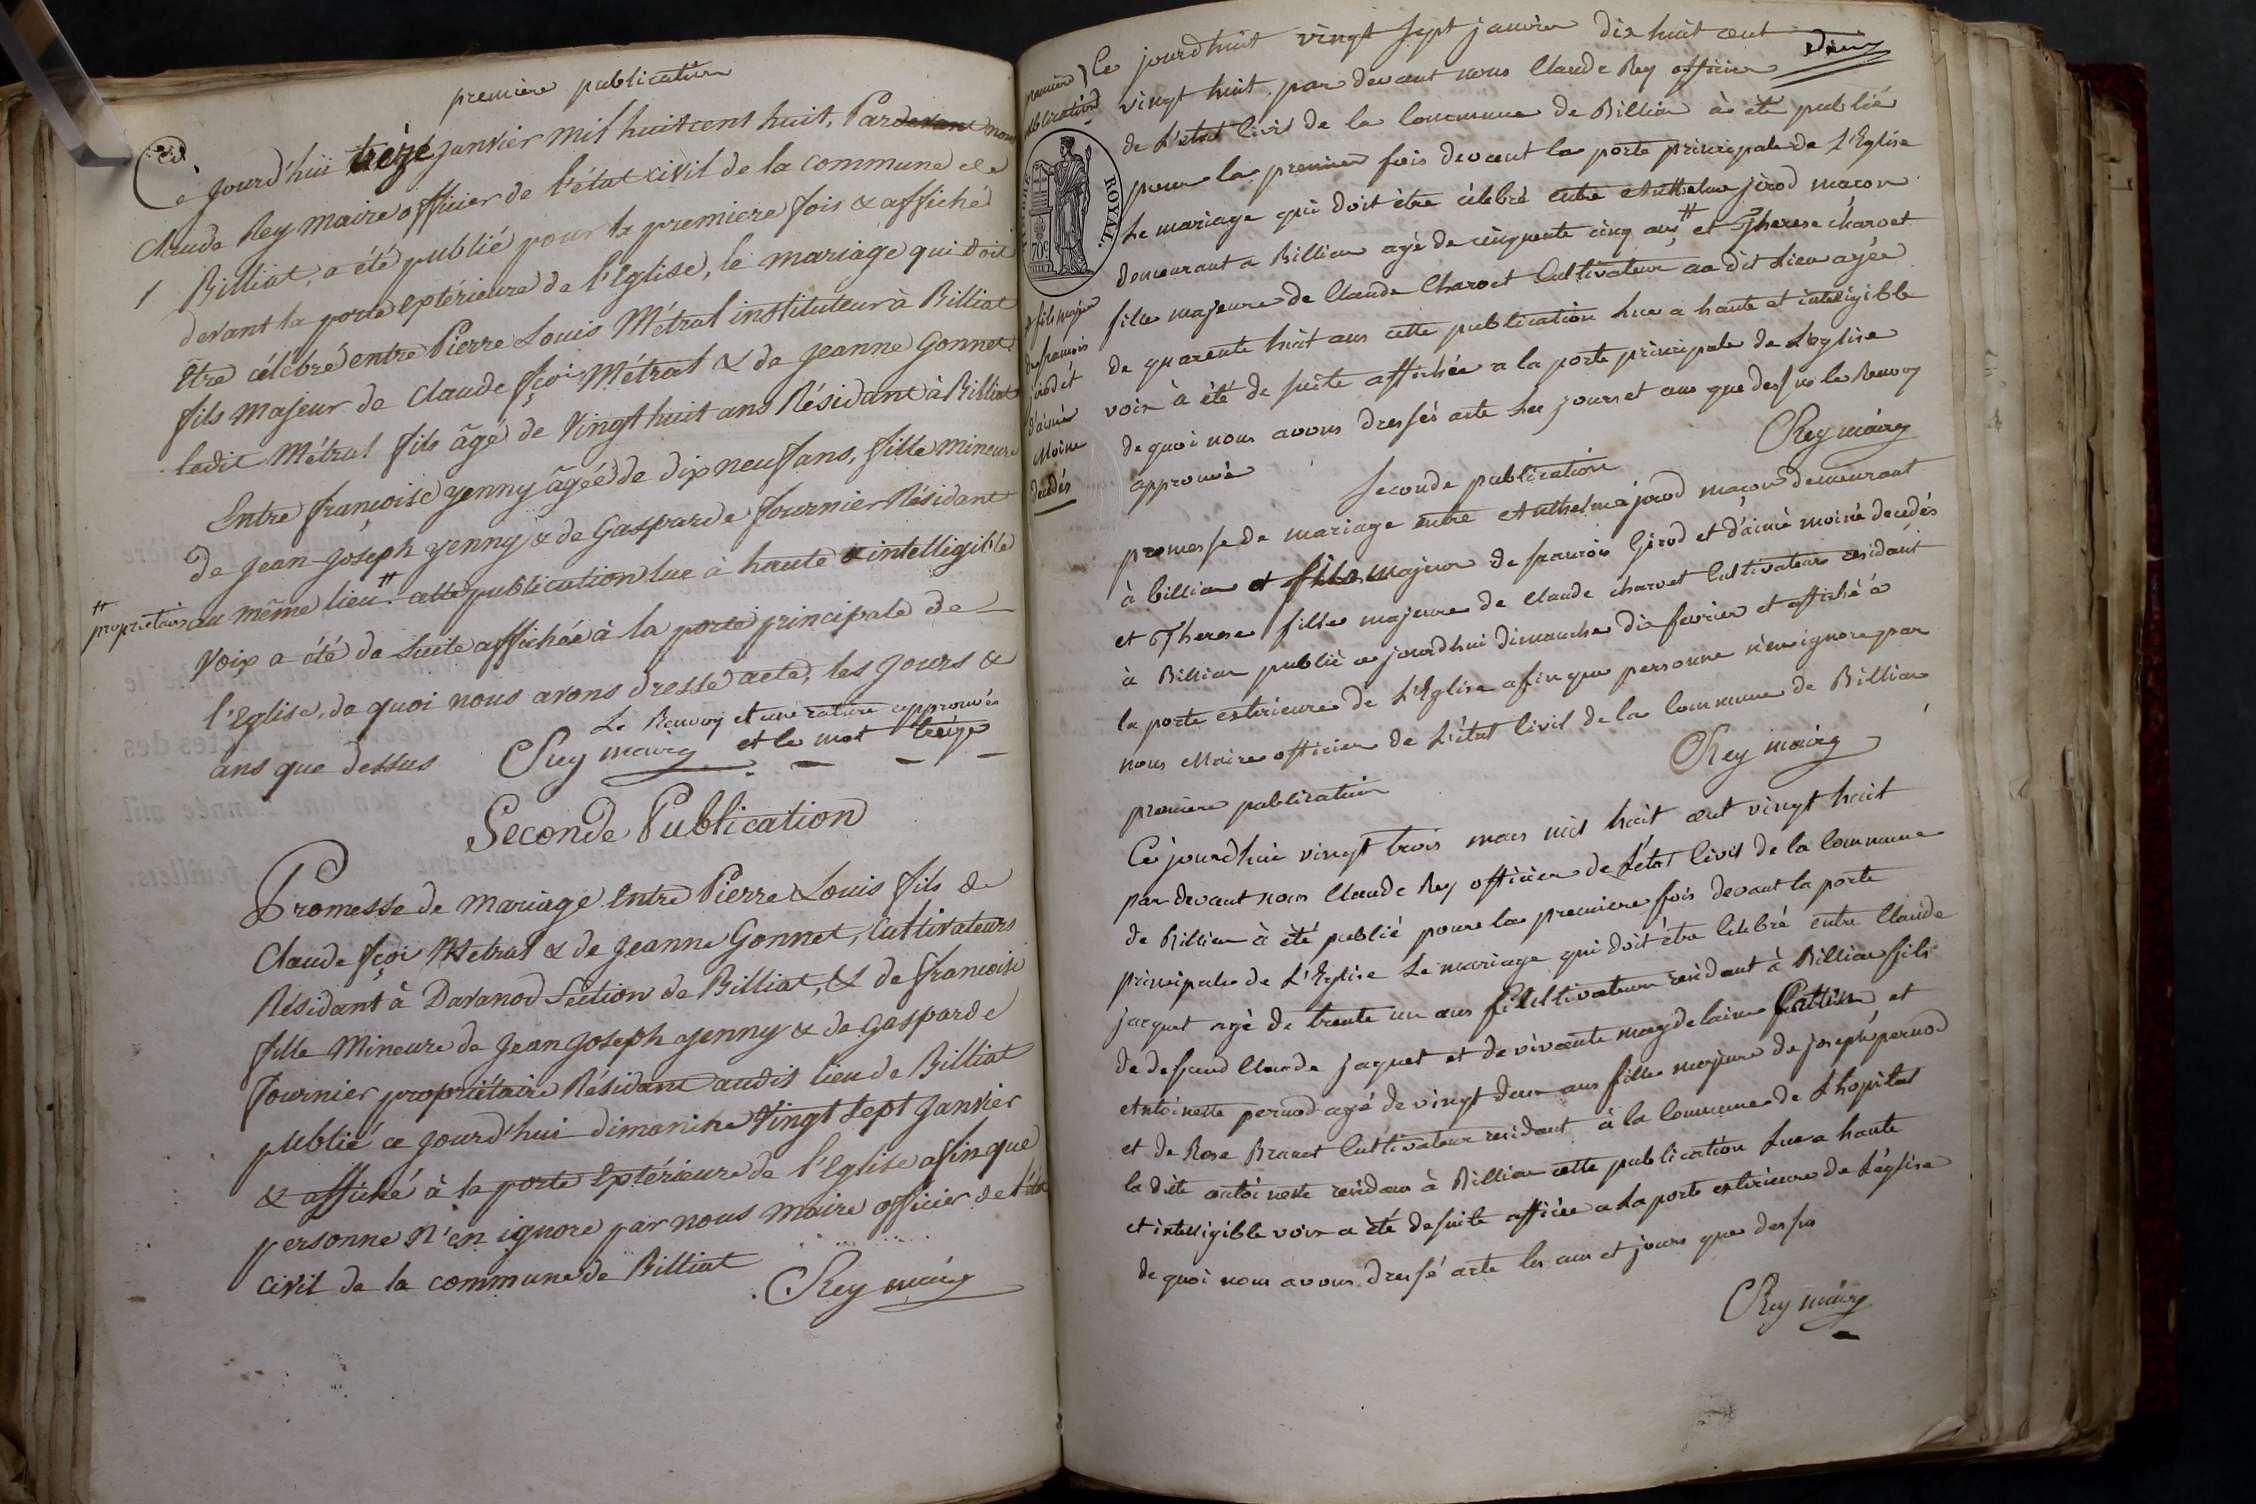 première publication
Ce jourd'hui treize janvier mil huit cent huit, Pardevant nous
Claude Rey maire officier de l'état civil de la commune de
1 Billiat, a été publié pour la premiere fois & affiché
devant la porte Extérieure de l'Eglise, le mariage qui doit
Etre célébré entre Pierre Louis Métral instituteur à Billiat
fils majeur de Claude fçois Métral & de jeanne Gonnet
ledit Métral fils âgé de Vingt huit ans Résidant à Billiat
Entre françoise yenny âgée de dix neuf ans, fille mineure
de jean-joseph yenny & de Gasparde fournier Résidant
# propriétaire
au même lieu # cette publication lue à haute & intelligible
voix a été de suite affichée à la porte principale de
l'Eglise, de quoi nous avons dressé acte, les jours &
ans que dessus
Le Renvoy et une rature approuvés
et le mot treize
CRey maire
Seconde Publication
Promesse de mariage Entre Pierre Louis fils de
Claude fçois Metral & de jeanne Gonnet, Cultivateurs
Résidant à Davanod Section de Billiat, & de francoise
fille Mineure de jean joseph yenny & de Gasparde
fournier propriétaire Résidant audit lieu de Billiat
publié ce jourd'hui dimanche Vingt Sept janvier
& affiché à la porte Extérieure de l'Eglise afin que
personne n'en ignore par nous maire officier de l'état
civil de la commune de Billiat
CRey maire
première
publication
Ce jourdhuit vingt sept janvier dix huit cent
deux
vingt huit par devant nous Claude Rey officier
de L'état civil de la Commune de Billiau à été publié
pour la premier fois devant la porte principale de L'Eglise
Le mariage qui doit être célébré entre Anthelme jirod macon
demeurant a Billiau agé de cinquente cinq ans # et Therese charvet
fille majeure de Claude Charvet Cultivateur au dit Lieu agée
de quarente huit ans cette publication Lue a haute et inteligible
voix à été de suite affichée a la porte principale de L'eglise
de quoi nous avons dressés acte Les jours et ans que dessus le Renvoy
approuvé
CRey maire
ROYAL.
70c
# fils majeur
de francois
jirod et
d'aimé
Moine
decedés
Seconde publication
promesse de mariage entre Anthelme jirod maçon demeurant
à billiau et fils majeur de francois Girod et d'aimé moine decedés
et Therese fille majeure de Claude charvet Cultivateur residant
à Billiau publié ce jourdhui dimanche dix fevrier et affiché á
la porte exterieure de L'Eglise afin que personne n'en ignore par
nous Maire officier de L'état Civil de la Commune de Billiau
CRey maire
premiere publication
Ce jourdhui vingt trois mars mil huit cent vingt huit
par devant nous Claude Rey officier de L'état Civil de la Commune
de Billiau à été publié pour la premiere fois devant la porte
principale de L'Eglise Le mariage qui doit être Célébré entre Claude
jacquet agé de trente un ans Cultivateur residant à Billiau fils
de deffund Claude jaquet et de vivante magdelaine
et
Antoinette pernod agé de vingt deux ans fille majeure de joseph pernod
et de Rose Cultivateur residant à la Commune de L'hopital
la dite antoinette residan à Billiau cette publication Lue a haute
et intelligible voix a été de suite affiée a La porte exterieure de L'église
de quoi nous avons dressé acte les ans et jours que dessus
CRey maire